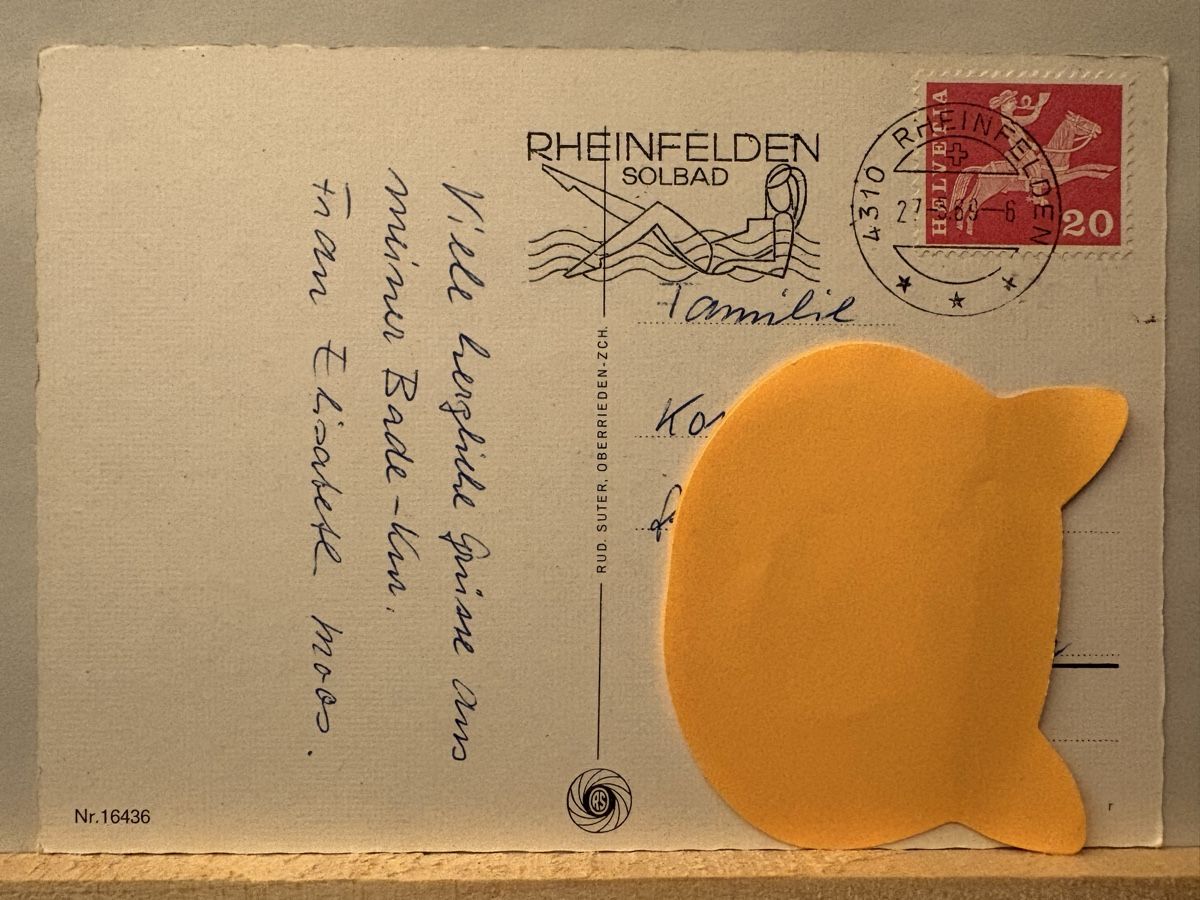 Viele herzliche Grüsse aus
meiner Bade-Kur.
Frau Elisabeth Moos.
Nr.16436
RUD. SUTER, OBERRIEDEN-ZCH.
RS
RHEINFELDEN
SOLBAD
4310 RHEINFELDEN
69-6
HELVETIA
20
Familie